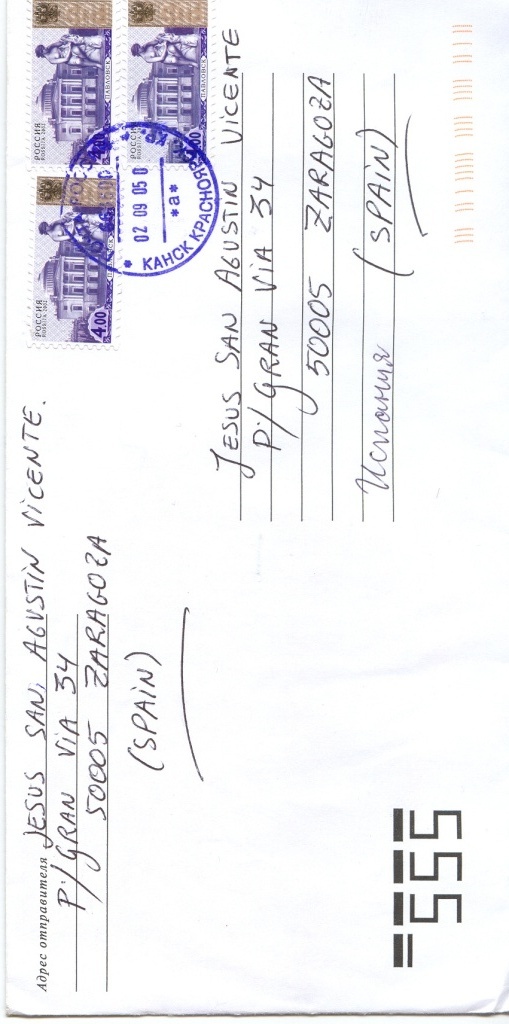 Адрес отправителя JESUS SAN AGUSTIN VICENTE.
P:/ GRAN VIA 34
50005 ZARAGOZA
(SPAIN)
РОССИЯ
ROSSIJA 2002
4.00
ПАВЛОВСК
РОССИЯ
ROSSIJA 2002
ПАВЛОВСК
РОССИЯ
ПАВЛОВСК
02 09 05 0
*а*
* КАНСК КРАСНОЯР
JESUS SAN AGUSTIN VICENTE
P:/ GRAN VIA 34
50005 ZARAGOZA
Испания (SPAIN)